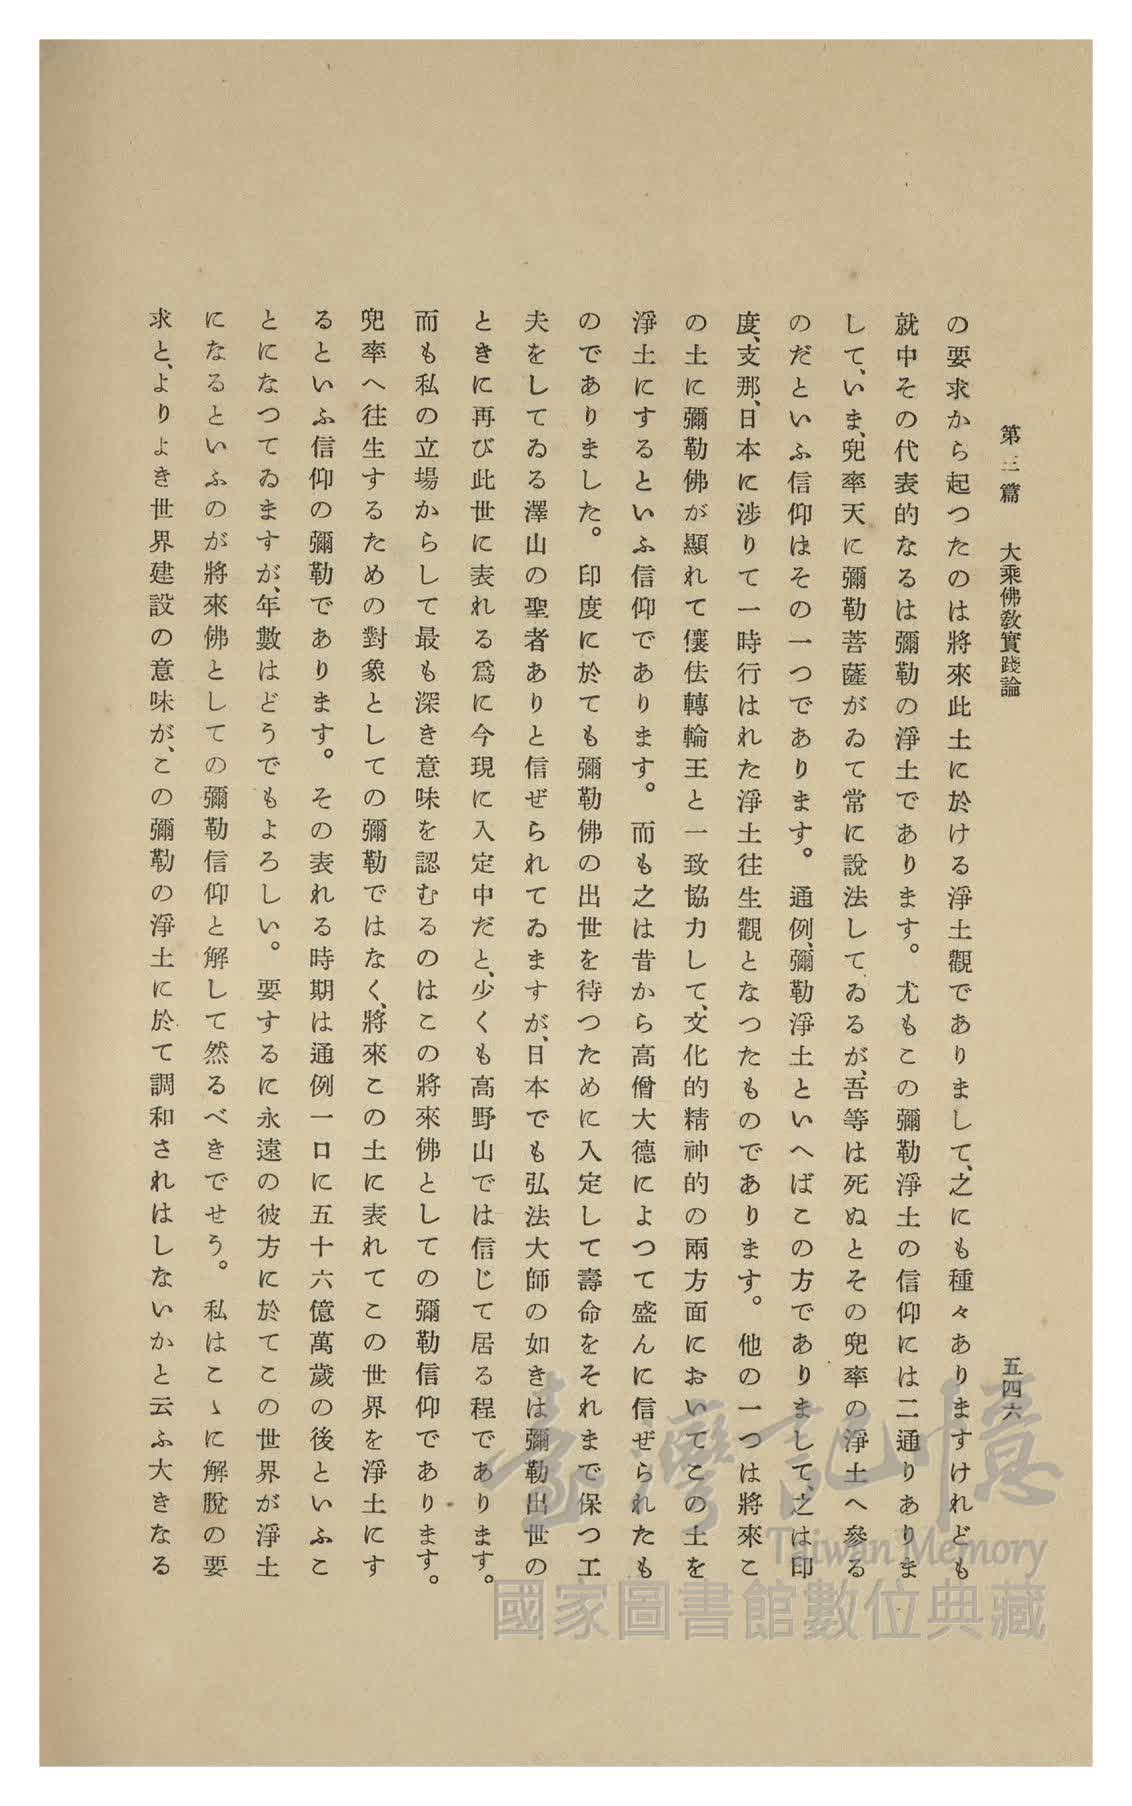 第三篇　大乘佛敎實踐論
五四六
の要求から起つたのは將來此土に於ける淨土觀でありまして、之にも種々ありますけれども
就中その代表的なるは彌勒の淨土であります。尤もこの彌勒淨土の信仰には二通りありま
して、いま、兜率天に彌勒菩薩がゐて常に說法してゐるが、吾等は死ぬとその兜率の淨土へ參る
のだといふ信仰はその一つであります。通例、彌勒淨土といへばこの方でありまして、之は印
度、支那、日本に涉りて一時行はれた淨土往生觀となつたものであります。他の一つは將來こ
の土に彌勒佛が顯れて儴佉轉輪王と一致協力して、文化的精神的の兩方面においてこの土を
淨土にするといふ信仰であります。而も之は昔から高僧大德によつて盛んに信ぜられたも
のでありました。印度に於ても彌勒佛の出世を待つために入定して壽命をそれまで保つ工
夫をしてゐる澤山の聖者ありと信ぜられてゐますが、日本でも弘法大師の如きは彌勒出世の
ときに再び此世に表れる爲に今現に入定中だと、少くも高野山では信じて居る程であります。
而も私の立場からして最も深き意味を認むるのはこの將來佛としての彌勒信仰であります。
兜率へ往生するための對象としての彌勒ではなく、將來この土に表れてこの世界を淨土にす
るといふ信仰の彌勒であります。その表れる時期は通例一口に五十六億萬歲の後といふこ
とになつてゐますが、年數はどうでもよろしい。要するに永遠の彼方に於てこの世界が淨土
になるといふのが將來佛としての彌勒信仰と解して然るべきでせう。私はこゝに解脫の要
求と、よりよき世界建設の意味が、この彌勒の淨土に於て調和されはしないかと云ふ大きなる
臺灣記憶
Taiwan Memory
國家圖書館數位典藏